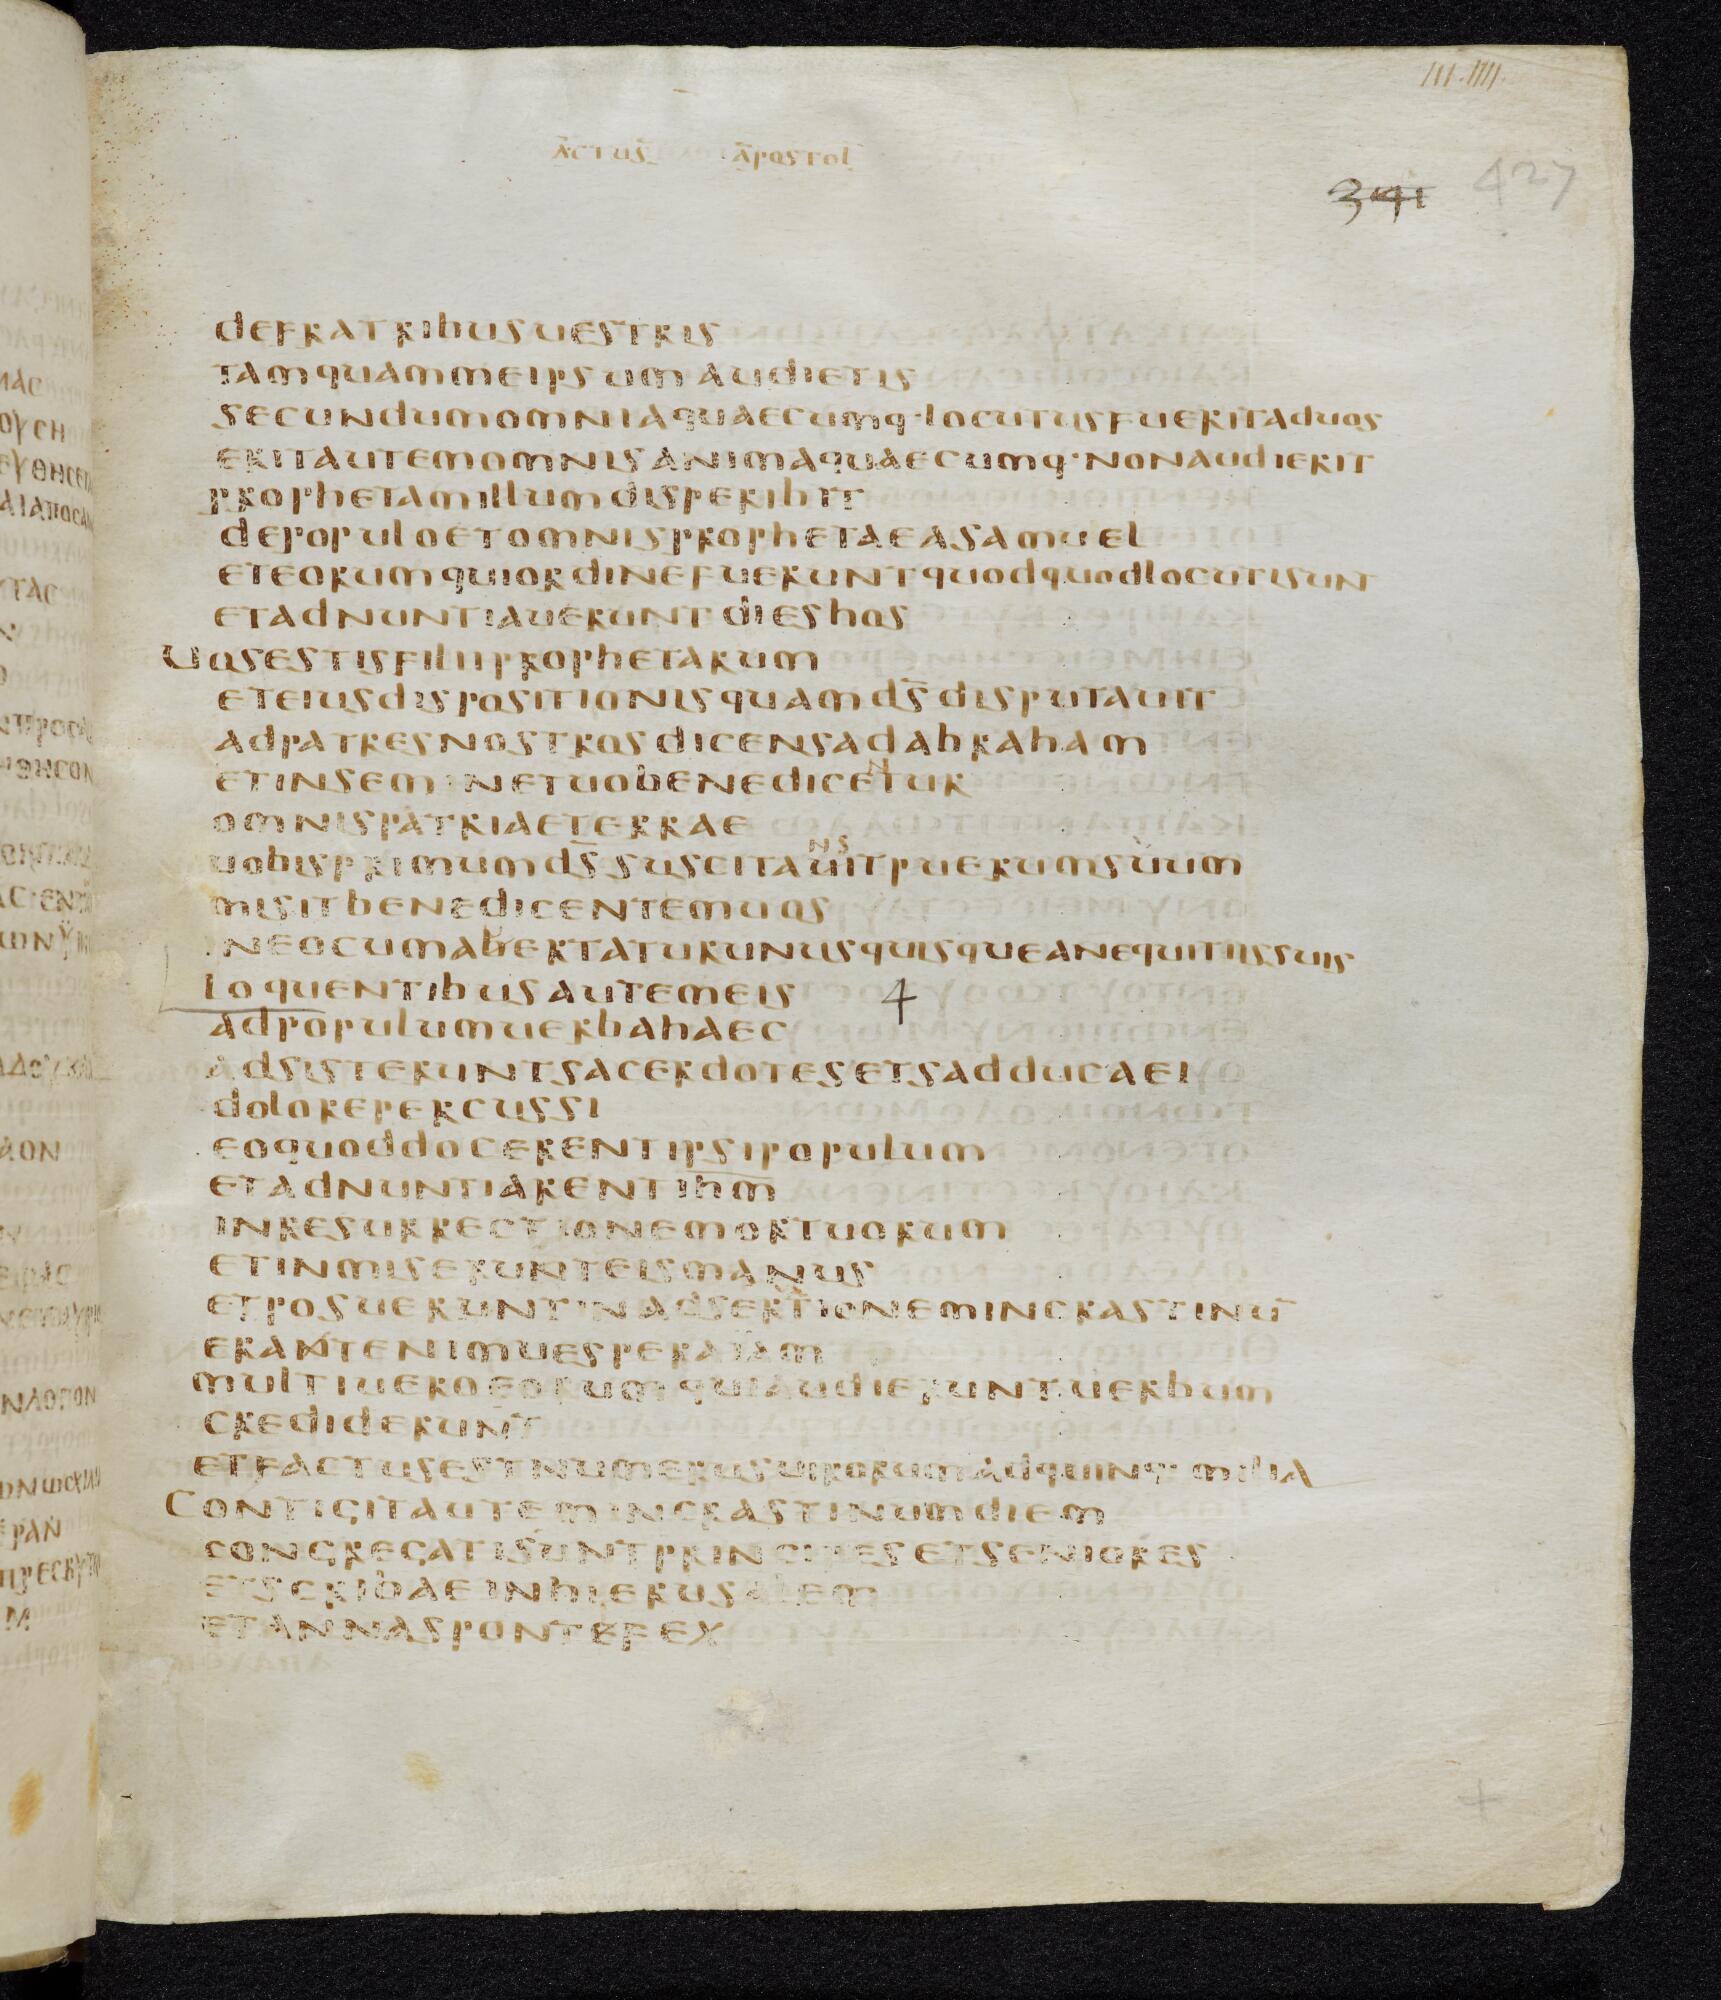 III·IIII·
ACTUS APOSTOL
341 427
defratribusuestris
tamquammeipsumaudietis
secundumomniaquaecumq·locutusfueritaduos
eritautemomnisanimaquaecumq·nonaudierit
prophetamillumdisperibit
depopuloetomnisprophetaeasamuel
eteorumquiordinefueruntquodquodlocutisunt
etadnuntiaueruntdieshos
Uosestisfiliiprophetarum
eteiusdispositionisquamds̄disputauit
adpatresnostrosdicensadabraham
etinseminetuobenedicentur
omnispatriaeterrae
uobisprimumds̄suscitauitpuerumsuum
misitbenedicentemuos
ineocumabertaturunusquisqueanequitiissuis
loquentibusautemeis 4
adpopulumuerbahaec
adsisteruntsacerdotesetsadducaei
dolorepercussi
eoquoddocerentipsipopulum
etadnuntiarentih̄m̄
inresurrectionemortuorum
etinmiserunteismanus
etposueruntinadsertionemincrastinū
erantenimuesperaiam
multiueroeorumquiaudieruntuerbum
crediderunt
etfactusestnumerusuirorumadquinq·milia
Contigitautemincrastinumdiem
congregatisuntprincipesetseniores
etscribaeinhierusalem
etannaspontefex